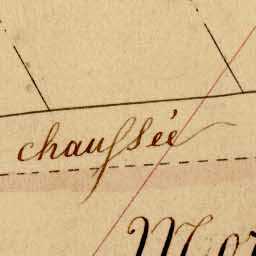 chaussée
Mor